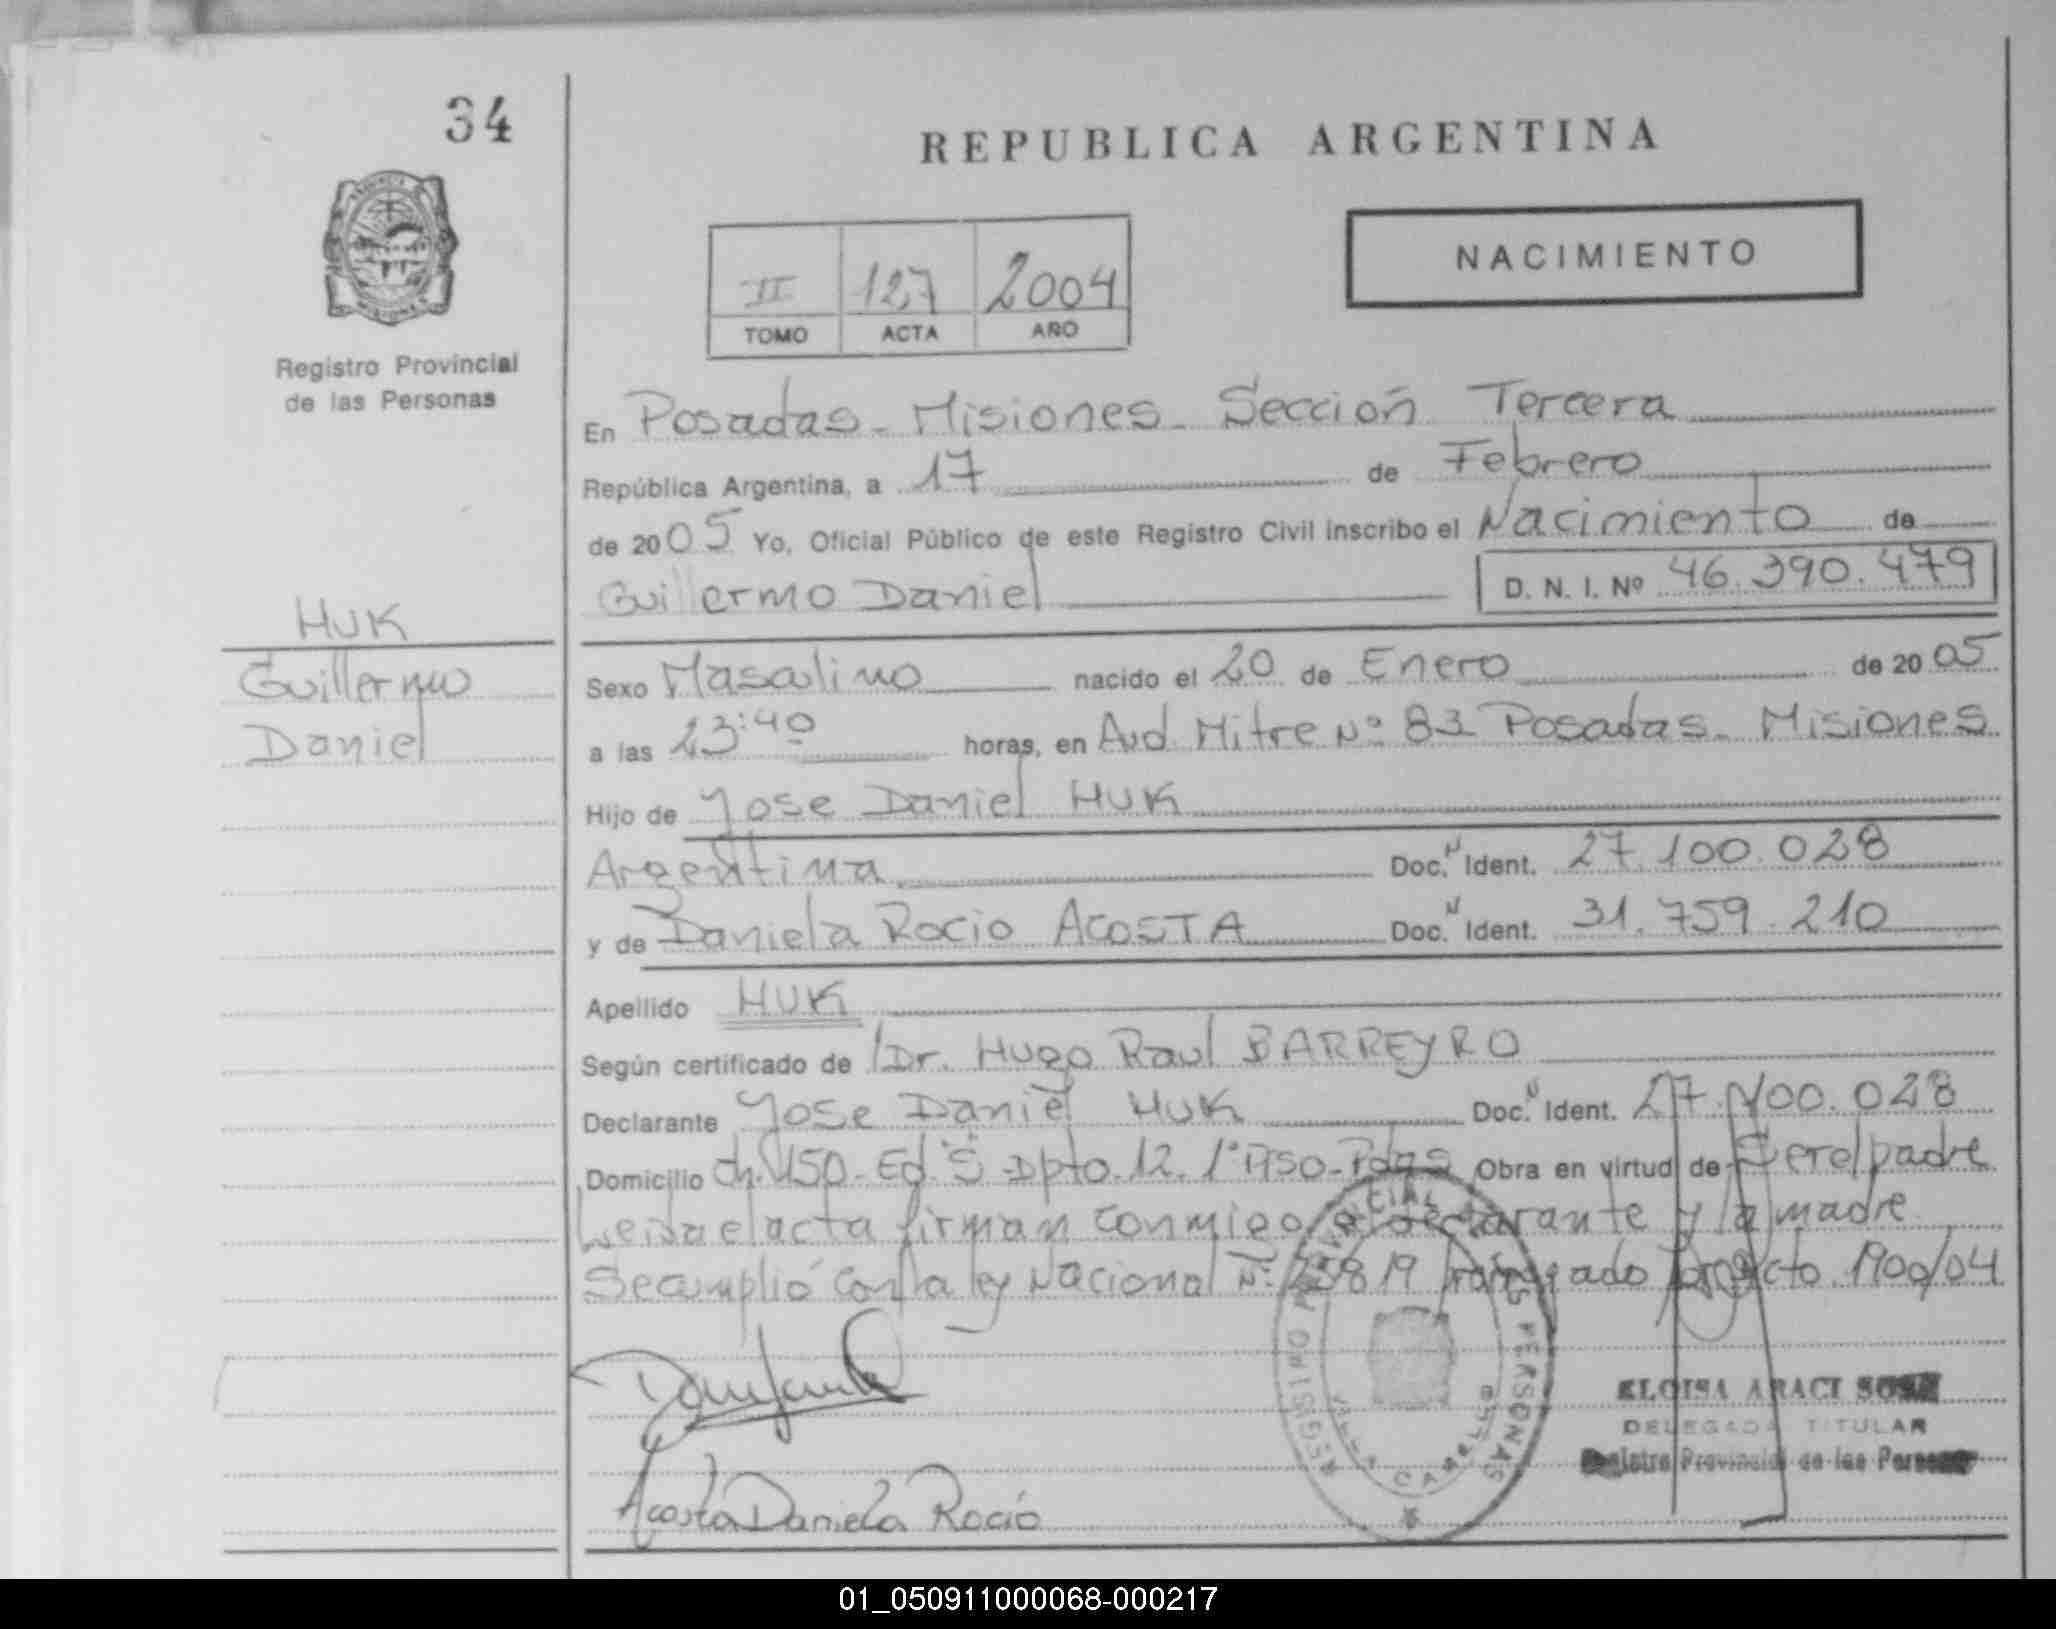 34
REPUBLICA ARGENTINA
NACIMIENTO
II 127 2004
TOMO ACTA AÑO
Registro Provincial
de las Personas
En Posadas - Misiones - Sección Tercera
República Argentina, a 17 de Febrero
de 2005 Yo, Oficial Público de este Registro Civil inscribo el Nacimiento de
Guillermo Daniel D. N. I. Nº 46.390.479
HUK
Guillermo
Daniel
Sexo Masculino nacido el 20 de Enero de 2005
a las 23:40 horas, en Avd. Mitre Nº 83 Posadas - Misiones
Hijo de Jose Daniel HUK
Argentina Doc. N Ident. 27.100.028
y de Daniela Rocio ACOSTA Doc. N Ident. 31.759.210
Apellido HUK
Según certificado de Dr. Hugo Raul BARREYRO
Declarante Jose Daniel HUK Doc. N Ident. 27.100.028
Domicilio Ch. 150 - Ed. 5 - Dpto. 12. 1º Piso - Pdas Obra en virtud de Ser el padre
Leida el acta firman conmigo el declarante y la madre
Se cumplió con la ley Nacional Nº 25819 prorrogado por Dcto 1900/04
ELOISA ARACI SOSA
DELEGADA TITULAR
Registro Provincial de las Personas
Acosta Daniela Rocío
01_050911000068-000217